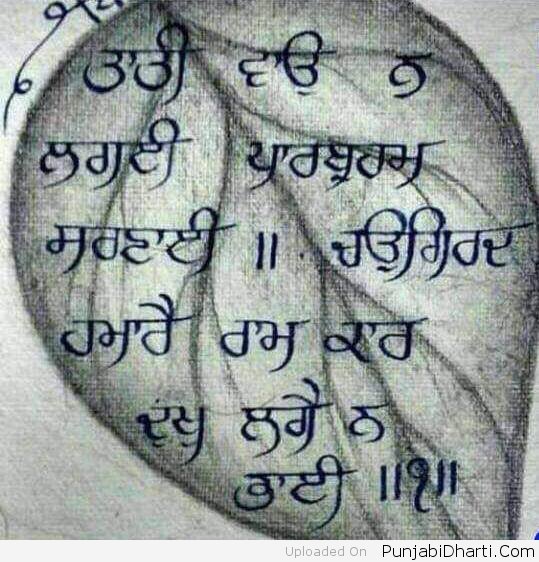 ਤਾਤੀ ਵਾਉ ਨ
ਲਗਈ ਪਾਰਬ੍ਰਹਮ
ਸਰਣਾਈ ॥ ਚਉਗਿਰਦ
ਹਮਾਰੈ ਰਾਮ ਕਾਰ
ਦੁਖੁ ਲਗੈ ਨ
ਭਾਈ ॥੧॥
Uploaded On PunjabiDharti.Com